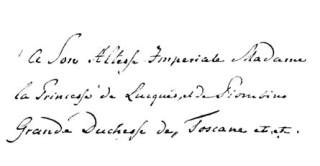 A Son Altesse Imperiale Madame
la Princesse de Lucques, et de Piombino
Grande Duchesse de, Toscane et. et.